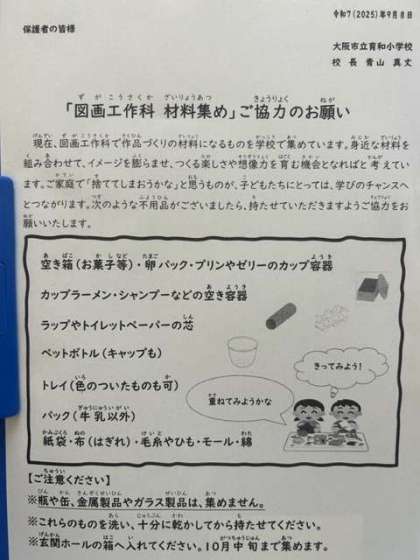 令和7(2025)年9月8日
保護者の皆様
大阪市立育和小学校
校 長 青山 真丈
「図画工作科 材料集め」ご協力のお願い
現在、図画工作科で作品づくりの材料になるものを学校で集めています。身近な材料を
組み合わせて、イメージを膨らませ、つくる楽しさや想像力を育む機会となればと考えてい
ます。ご家庭で「捨ててしまおうかな」と思うものが、子どもたちにとっては、学びのチャンスへ
とつながります。次のような不用品がございましたら、持たせていただきますようご協力をお
願いいたします。
空き箱(お菓子等)・卵パック・プリンやゼリーのカップ容器
カップラーメン・シャンプーなどの空き容器
ラップやトイレットペーパーの芯
ペットボトル(キャップも)
きってみよう!
トレイ(色のついたものも可)
重ねてみようかな
パック(牛乳以外)
紙袋・布(はぎれ)・毛糸やひも・モール・綿
【ご注意ください】
※瓶や缶、金属製品やガラス製品は、集めません。
※これらのものを洗い、十分に乾かしてから持たせてください。
※玄関ホールの箱へ入れてください。10月中旬まで集めます。